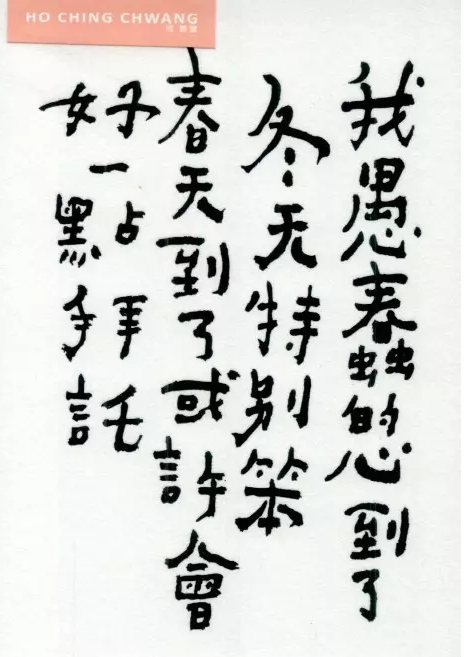 HO CHING CHWANG
何 景窗
我愚蠢的心到了
冬天特別笨
春天到了或許會
好一點拜託